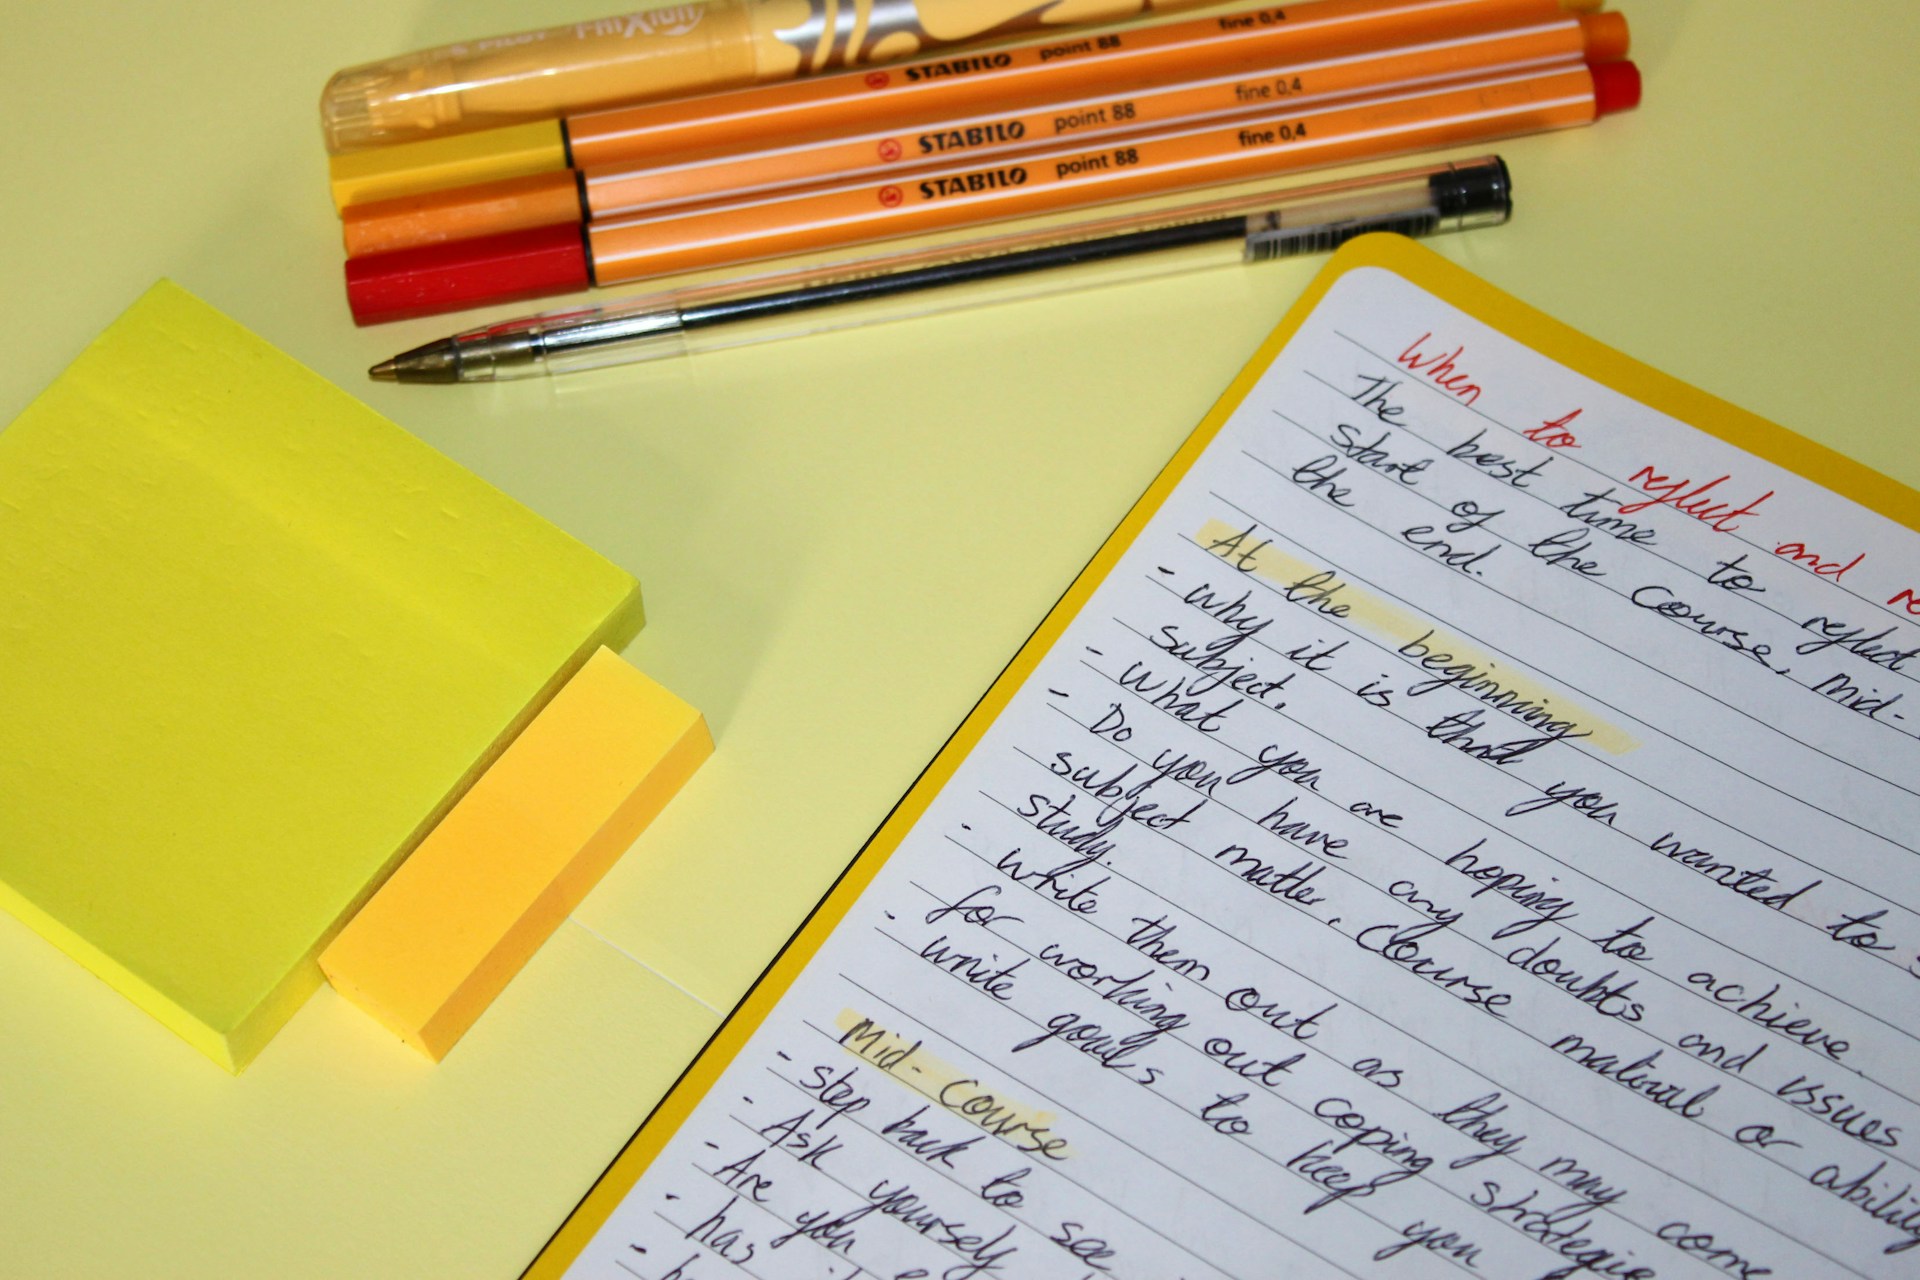 PILOT FRIXION
STABILO point 88 fine 0,4
STABILO point 88 fine 0,4
STABILO point 88 fine 0,4
When to reflect and
The best time to reflect
start of the course, mid-
the end.
At the beginning
- why it is that you wanted to
subject.
- what you are hoping to achieve.
- Do you have any doubts and issues
subject matter, course material or ability
study.
- write them out as they may come
for working out coping strategies
- write goals to keep you
Mid-Course
- step back to see
- Ask yourself
- Are you
- has